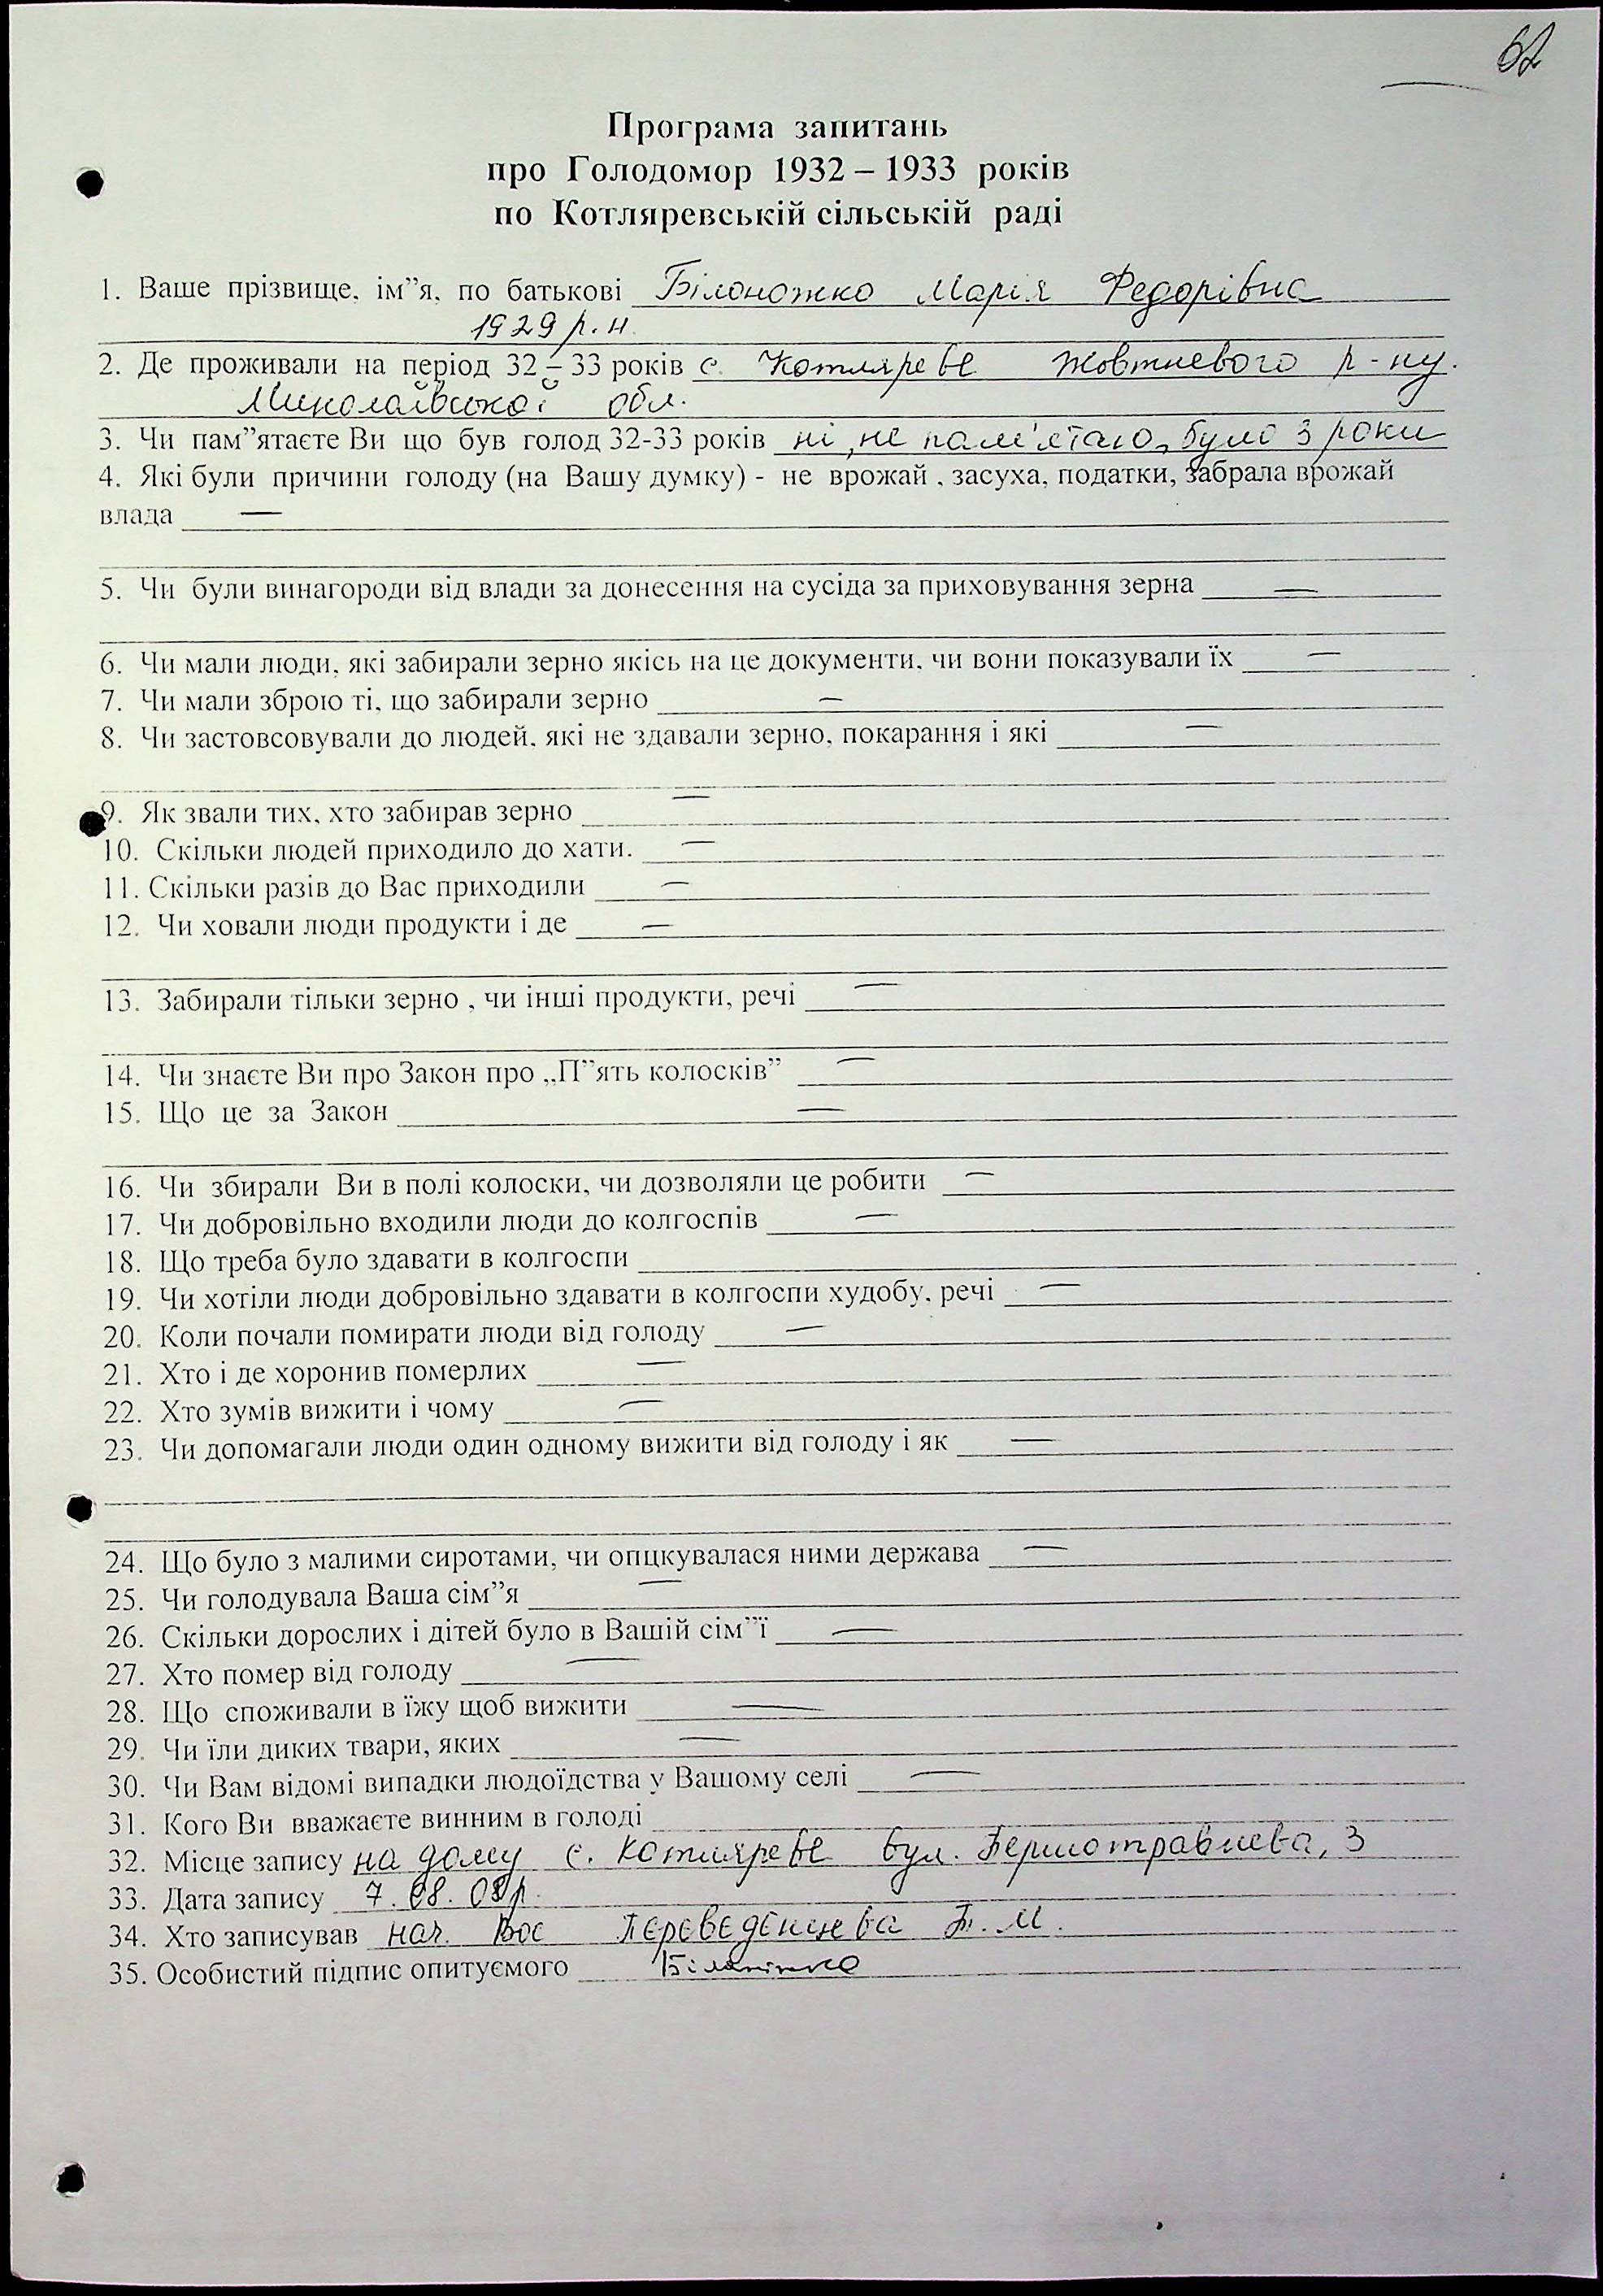 62
Програма запитань
про Голодомор 1932 – 1933 років
по Котляревській сільській раді
1. Ваше прізвище, ім”я, по батькові Білоножко Марія Федорівна
1929 р.н.
2. Де проживали на період 32 – 33 років с. Котляреве Жовтневого р-ну.
Миколаївської обл.
3. Чи пам”ятаєте Ви що був голод 32-33 років ні, не пам'ятаю, було 3 роки
4. Які були причини голоду (на Вашу думку) - не врожай , засуха, податки, забрала врожай
влада —
5. Чи були винагороди від влади за донесення на сусіда за приховування зерна —
6. Чи мали люди, які забирали зерно якісь на це документи, чи вони показували їх —
7. Чи мали зброю ті, що забирали зерно —
8. Чи застовсовували до людей, які не здавали зерно, покарання і які —
9. Як звали тих, хто забирав зерно —
10. Скільки людей приходило до хати. —
11. Скільки разів до Вас приходили —
12. Чи ховали люди продукти і де —
13. Забирали тільки зерно , чи інші продукти, речі —
14. Чи знаєте Ви про Закон про „П”ять колосків” —
15. Що це за Закон —
16. Чи збирали Ви в полі колоски, чи дозволяли це робити —
17. Чи добровільно входили люди до колгоспів —
18. Що треба було здавати в колгоспи
19. Чи хотіли люди добровільно здавати в колгоспи худобу, речі —
20. Коли почали помирати люди від голоду —
21. Хто і де хоронив померлих —
22. Хто зумів вижити і чому —
23. Чи допомагали люди один одному вижити від голоду і як —
24. Що було з малими сиротами, чи опцкувалася ними держава —
25. Чи голодувала Ваша сім”я —
26. Скільки дорослих і дітей було в Вашій сім”ї —
27. Хто помер від голоду —
28. Що споживали в їжу щоб вижити —
29. Чи їли диких твари, яких —
30. Чи Вам відомі випадки людоїдства у Вашому селі —
31. Кого Ви вважаєте винним в голоді
32. Місце запису на дому с. Котляреве вул. Першотравнева, 3
33. Дата запису 7. 08. 08р.
34. Хто записував нач. Вос Переведенцева Т. М.
35. Особистий підпис опитуємого